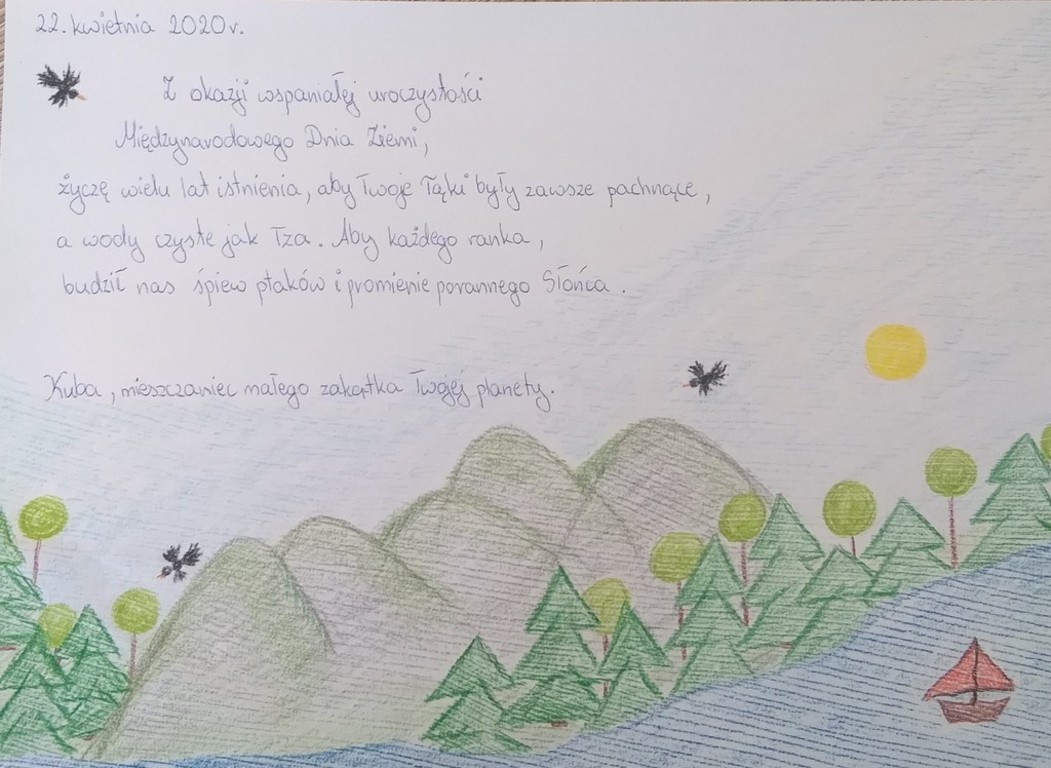 22. kwietnia 2020r.
Z okazji wspaniałej uroczystości
Międzynarodowego Dnia Ziemi,
życzę wielu lat istnienia, aby Twoje łąki były zawsze pachnące,
a wody czyste jak łza. Aby każdego ranka,
budził nas śpiew ptaków i promienie porannego Słońca.
Kuba, mieszczaniec małego zakątka Twojej planety.